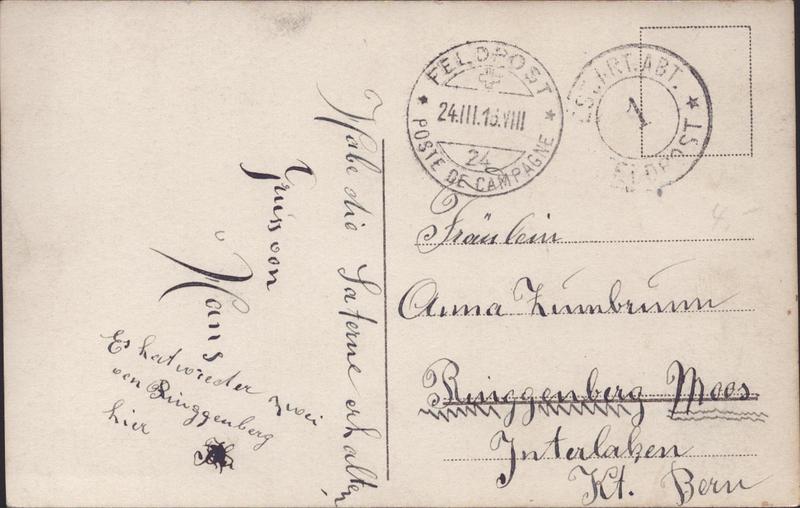 Habe die Laterne erhalten
Gruss von
Hans
Es hat wieder zwei
von Ringgenberg
hier
FELDPOST
24.III.16.VIII
24
POSTE DE CAMPAGNE
ART. ABT.
1
FELDPOST
4.-
Fräulein
Anna Zumbrunn
Ringgenberg Moos
Interlaken
Kt. Bern